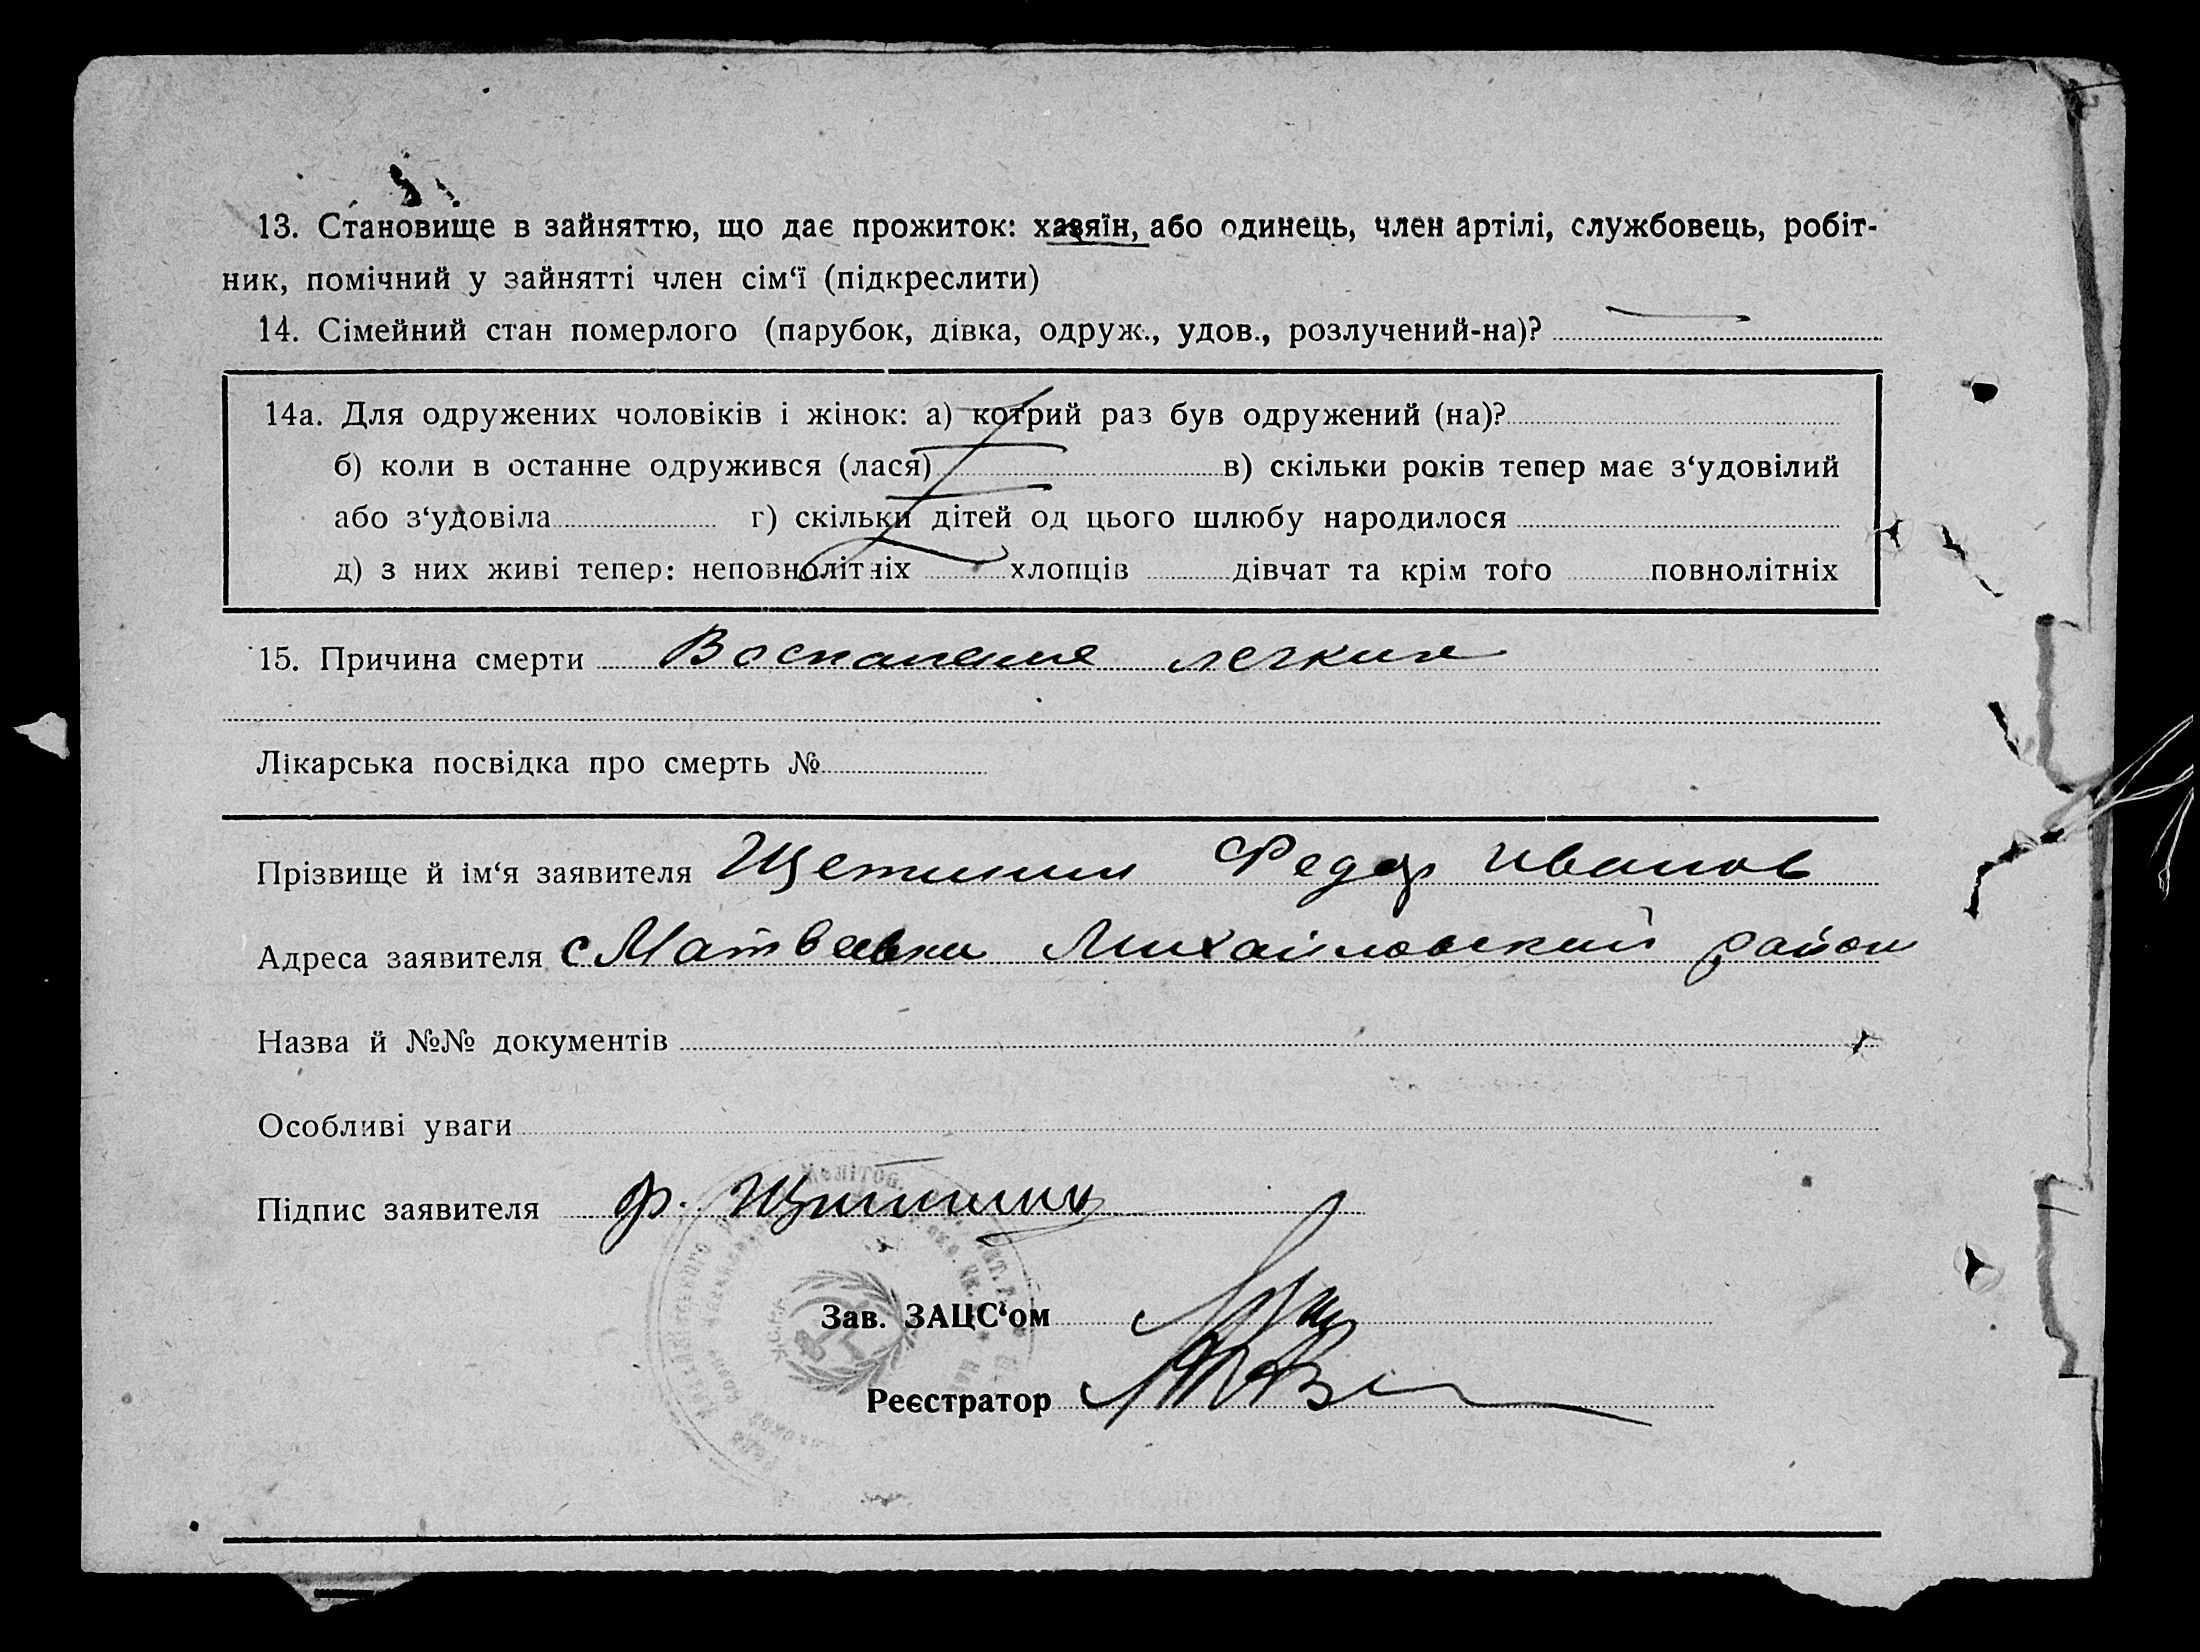 13. Становище в зайняттю, що дає прожиток: хазяїн, або одинець, член артілі, службовець, робіт-
ник, помічний у зайнятті член сім‘ї (підкреслити)
14. Сімейний стан померлого (парубок, дівка, одруж., удов., розлучений-на)?
14а. Для одружених чоловіків і жінок: а) котрий раз був одружений (на)?
б) коли в останне одружився (лася) в) скільки років тепер має з‘удовілий
або з‘удовіла г) скільки дітей од цього шлюбу народилося
д) з них живі тепер: неповнолітніх хлопців дівчат та крім того повнолітніх
15. Причина смерти Воспаление легких
Лікарська посвідка про смерть №
Прізвище й ім‘я заявителя Щетинин Федор Иванов
Адреса заявителя с Матвеевки Михайловский район
Назва й №№ документів
Особливі уваги
Підпис заявителя Ф. Щетинин
Зав. ЗАЦС‘ом
Реєстратор